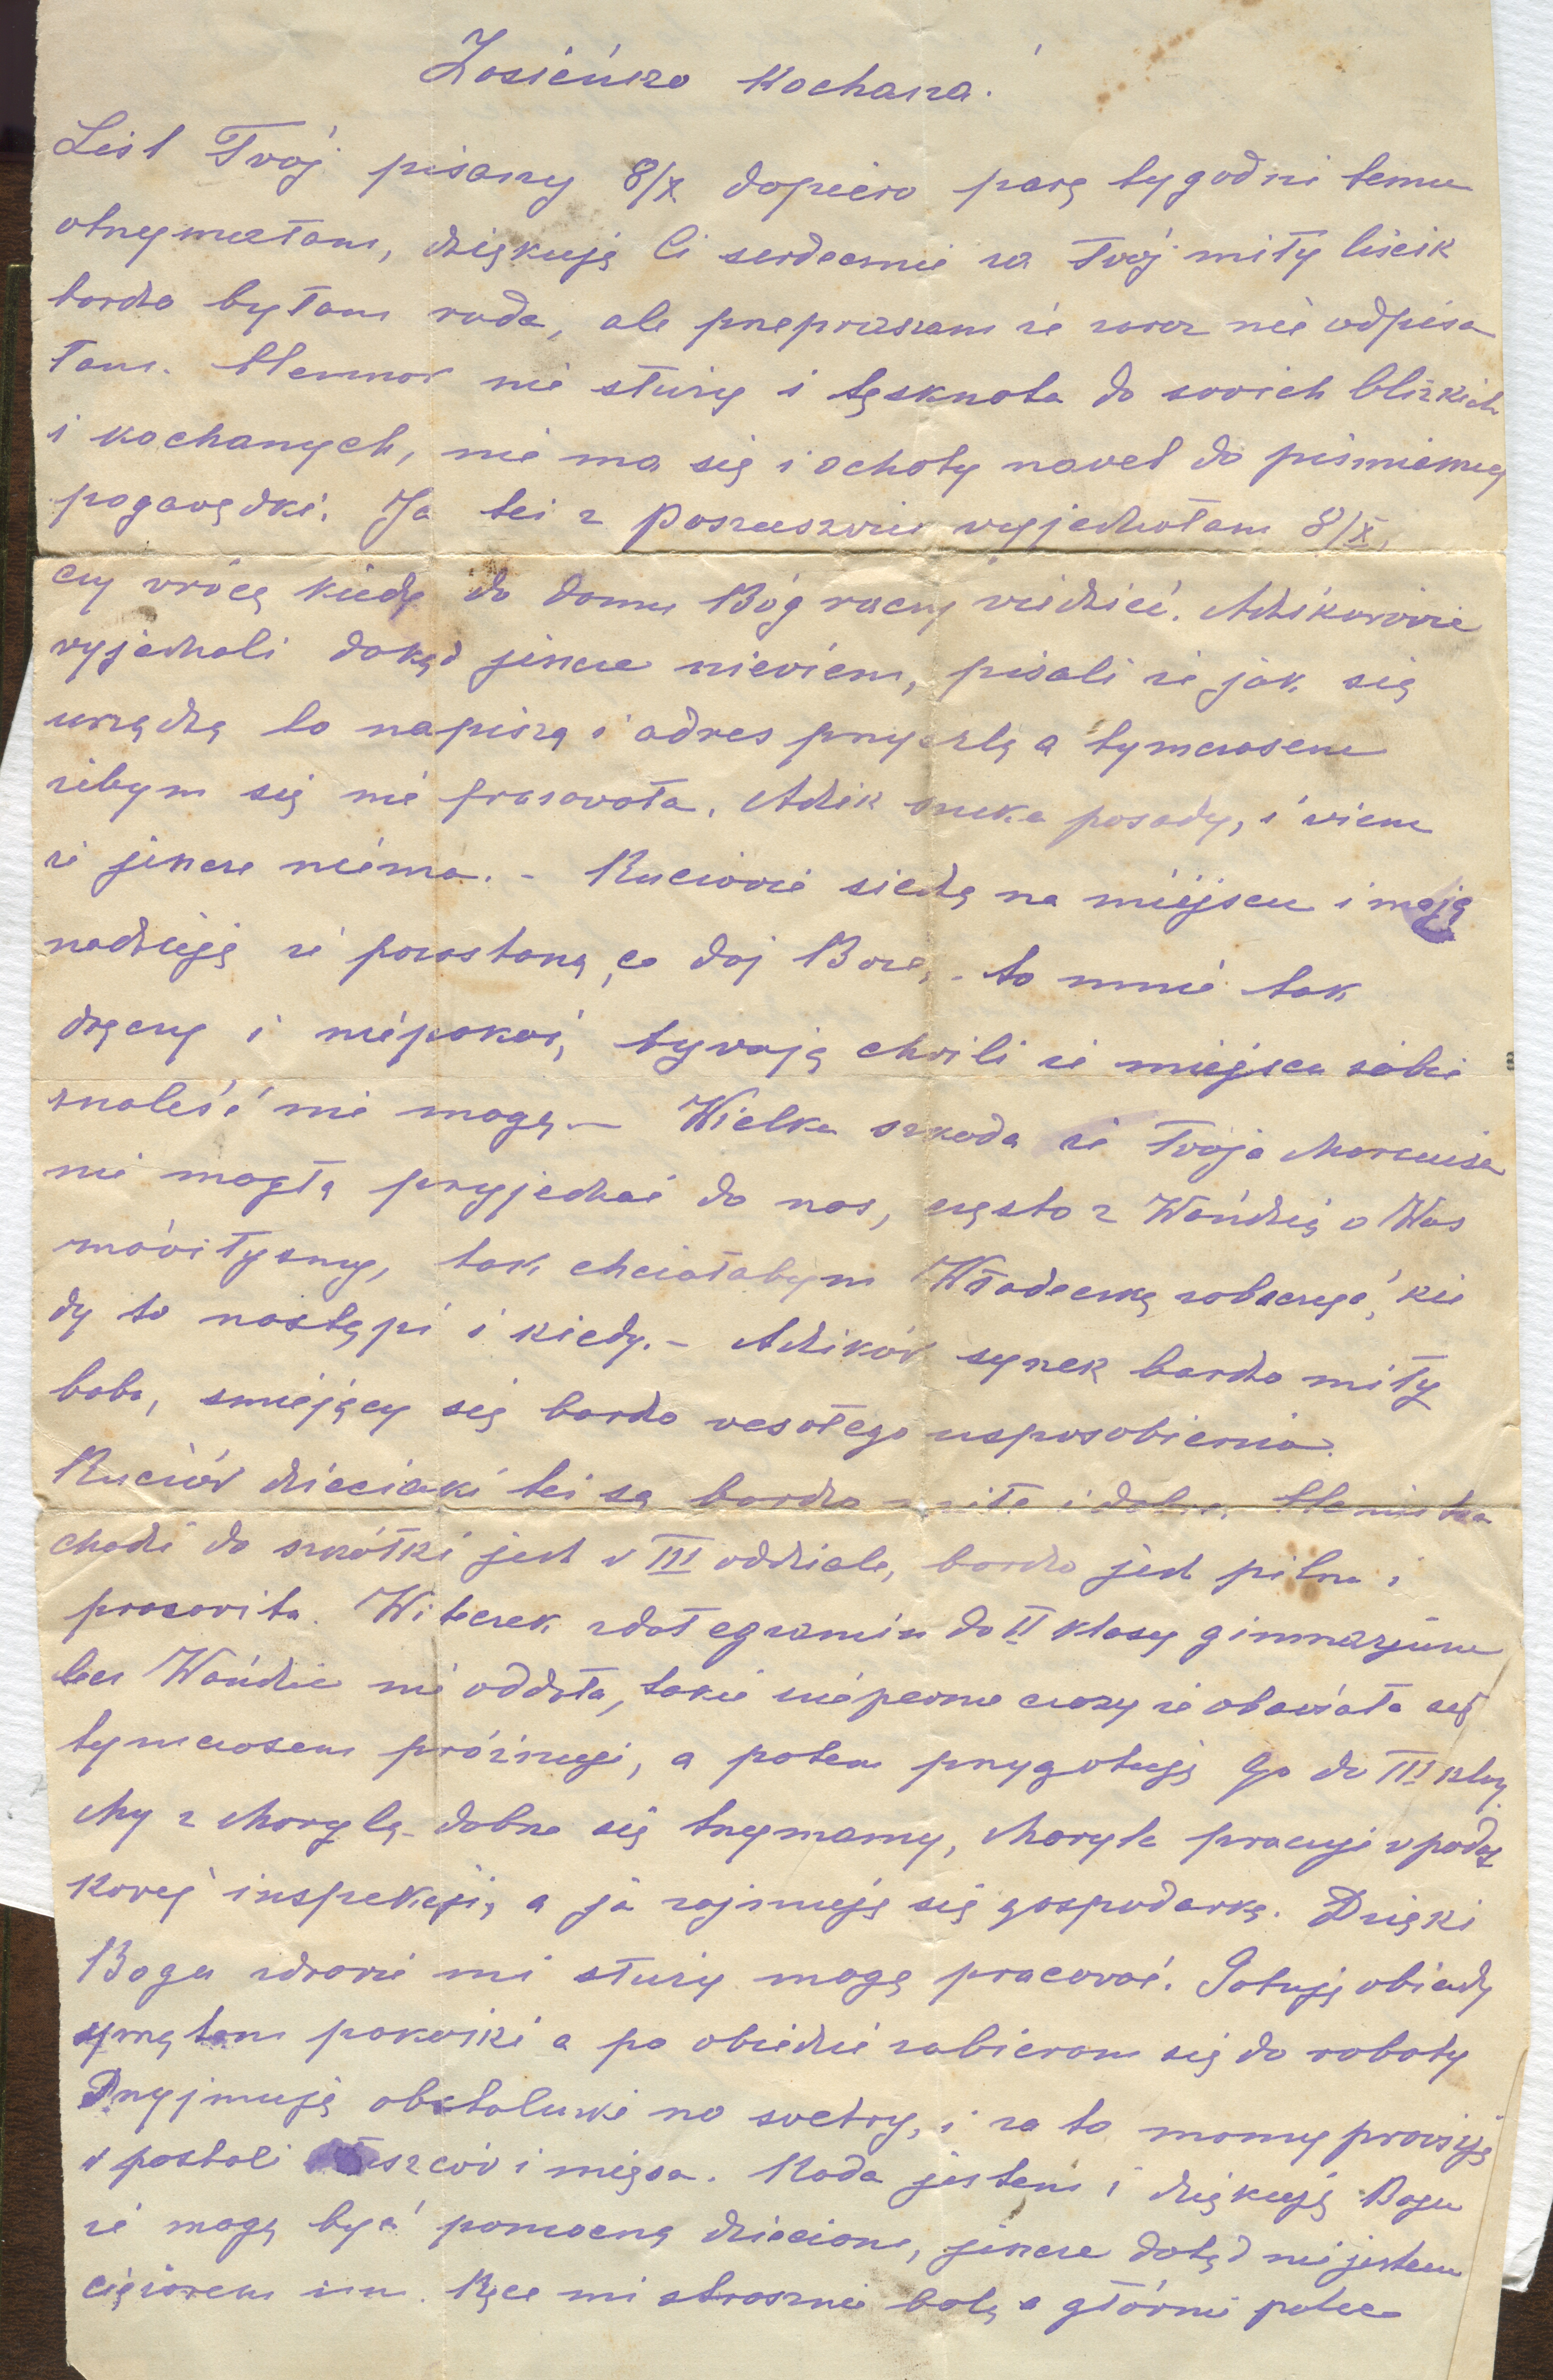 Zosieńko kochana.
List Twój pisany 8/X dopiero parę tygodni temu
otrzymałam, dziękuję Ci serdecznie za Twój miły liścik
bardzo byłam rada, ale przepraszam że zaraz nie odpisa
łam. Humor nie służy i tęsknota do swoich blizkich
i kochanych, nie ma się i ochoty nawet do piśmiennej
pogawędki. Ja też z wyjechałam 8/X,
czy wrócę kiedy do domu Bóg raczy wiedzieć. Adzikowie
wyjechali dokąd jeszcze niewiem, pisali że jak się
urządzą to napiszą i adres przyszlą a tymczasem
żebym się nie frasowała. Adzik szuka posady, i wiem
że jeszcze niema. - Ruciowie siedzą na miejscu i mają
nadzieję że pozostaną, co daj Boże, - to mnie tak
dręczy i niepokoi, bywają chwili że miejsca sobie
znaleść nie mogę. — Wielka szkoda że Twoja Marcuisa
nie mogła przyjechać do nas, często z Wańdzią o Was
mówiłyśmy, tak chciałabym Władeczkę zobaczyć, kie
dy to nastąpi i kiedy. - Adzików synek bardzo miły
boba, śmiejący się bardzo wesołego usposobienia.
Ruciów dzieciaki też są bardzo miłe i dobre,
chodzi do szkółki jest w III oddziale, bardzo jest pilna i
pracowita. Witeczek zdał egzamin do II klasy gimnazjum
lecz Wańdzia nie oddała, takie niepewne czasy że obawiała się
tymczasem próżnuje, a potem przygotuję Go do III klasy.
My z Marylą dobrze się trzymamy, Maryla pracuje w podat
kowej inspekcji, a ja zajmuję się gospodarką. Dzięki
Bogu zdrowie mi służy mogę pracować. Gotuję obiady
sprzątam pokoiki a po obiedzie zabieram się do roboty
Przyjmuję obstalunki na swetry, i za to mamy prowizję
w postaci tłuszczów i mięsa. Rada jestem i dziękuję Bogu
że mogę być pomocną dzieciom, jeszcze dotąd nie jestem
ciężarem im. Ręce mi strasznie bolą a głównie palce